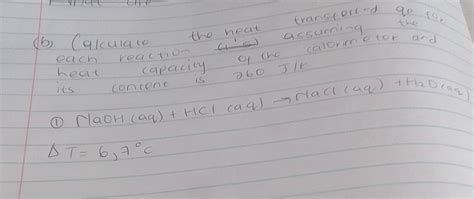 (b) Calculate the heat transferred qp for
each reaction assuming the
heat capacity of the calorimeter and
its content is 260 J/K
① NaOH (aq) + HCl (aq) → NaCl (aq) + H2O (aq)
ΔT = 6,7°C